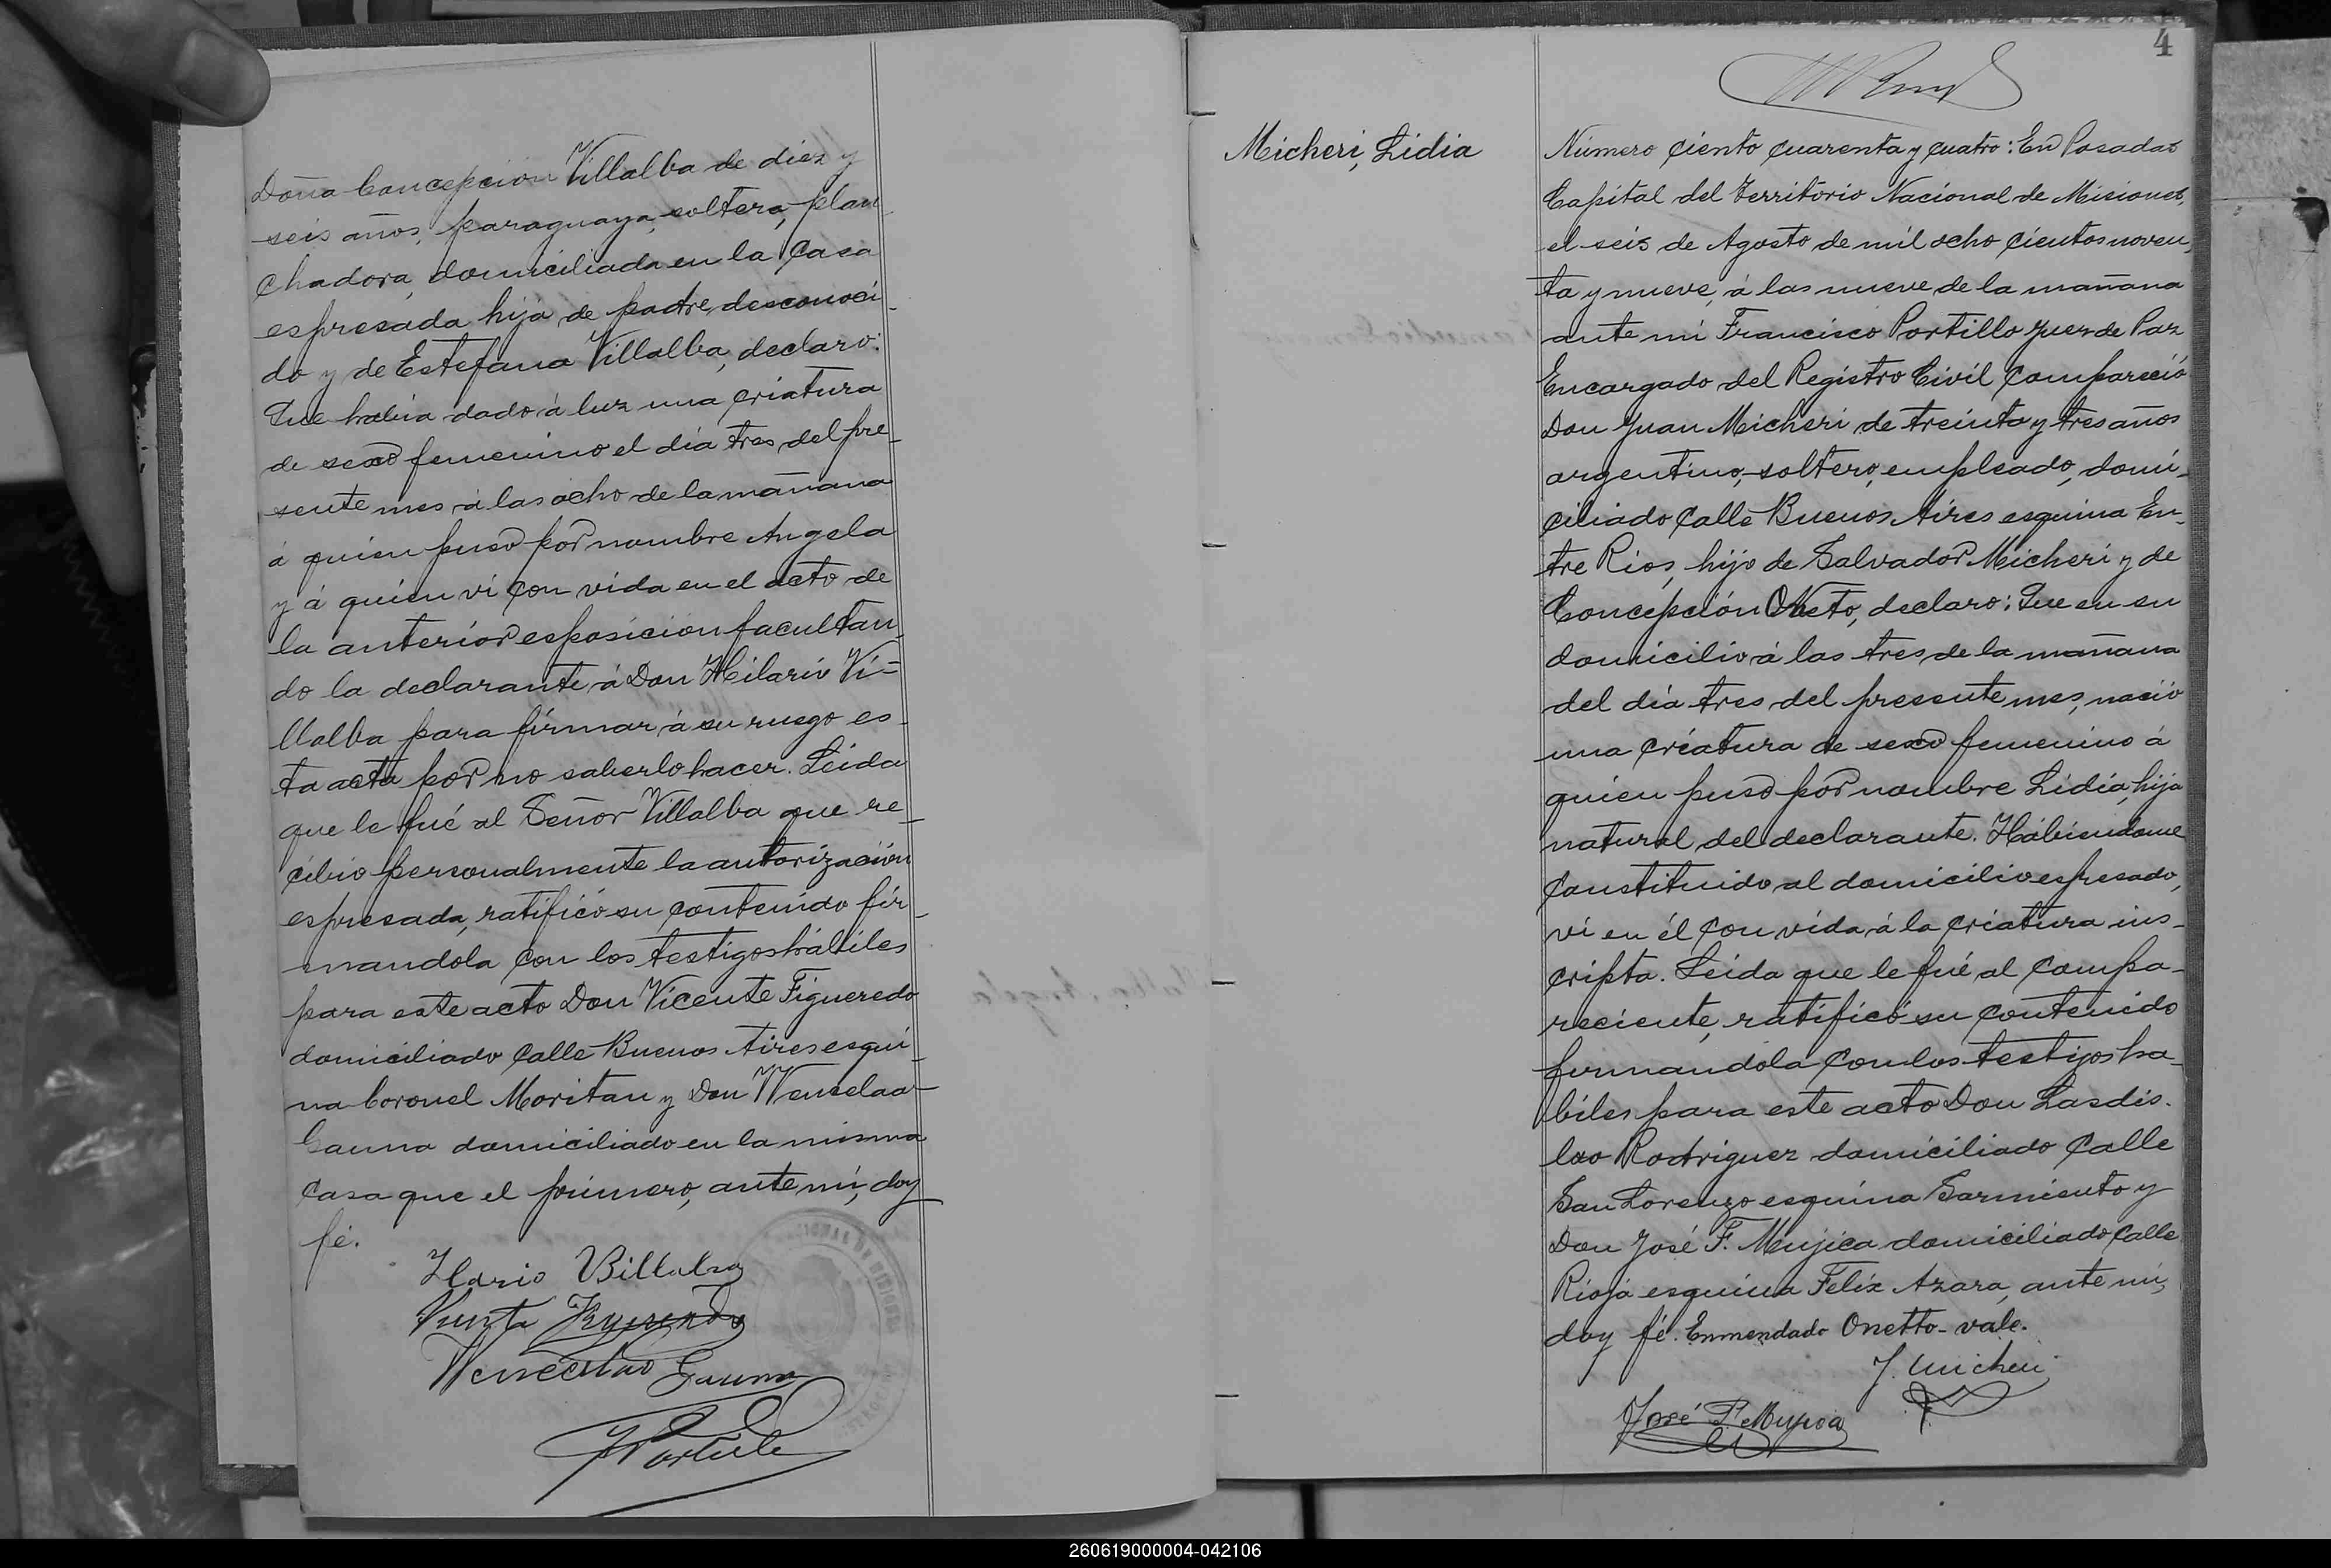 Doña Concepcion Villalba de diez y
seis años, paraguaya, soltera, plan
chadora, domiciliada en la casa
espresada hija de padre desconoci-
do y de Estefana Villalba, declaro:
Que habia dado á luz una criatura
de sexo femenino el dia tres del pre-
sente mes á las ocho de la mañana
á quien puso por nombre Angela
y á quien vi con vida en el acto de
la anterior esposicion facultan-
do la declarante á Don Hilario Vi-
llalba para firmar á su ruego es-
ta acta por no saberlo hacer. Leida
que le fué al Señor Villalba que re-
cibio personalmente la autorización
espresada, ratificó su contenido fir-
mandola con los testigos hábiles
para este acto Don Vicente Figueredo
domiciliado calle Buenos Aires esqui-
na Coronel Moritan y Don Wenselao
Gauna domiciliado en la misma
casa que el primero, ante mí, doy
fé.
Ilario Billalva
Wenceslao Gauna
4
Micheri, Lidia
Número ciento cuarenta y cuatro: En Posadas
Capital del Territorio Nacional de Misiones,
el seis de Agosto de mil ocho cientos noven-
ta y nueve, á las nueve de la mañana
ante mi Francisco Portillo Juez de Paz
Encargado del Registro Civil compareció
Don Juan Micheri de treinta y tres años
argentino, soltero, empleado, domi-
ciliado calle Buenos Aires esquina En-
tre Rios, hijo de Salvador Micheri y de
Concepción Oneto, declaro: Que en su
domicilio á las tres de la mañana
del día tres del presente mes, nació
una criatura de sexo femenino á
quien puso por nombre Lidia, hija
natural del declarante. Habiendome
constituido al domicilio espresado,
vi en él con vida á la criatura ins-
cripta. Leida que le fué al compa-
reciente, ratificó su contenido
firmandola con los testigos ha-
biles para este acto Don Lasdis-
lao Rodriguez domiciliado calle
San Lorenzo esquina Sarmiento y
Don José F. Mujica domiciliado calle
Rioja esquina Felix Azara, ante mi,
doy fé. Enmendado Onetto - vale.
J. Micheri
José F. Mujica
260619000004-042106